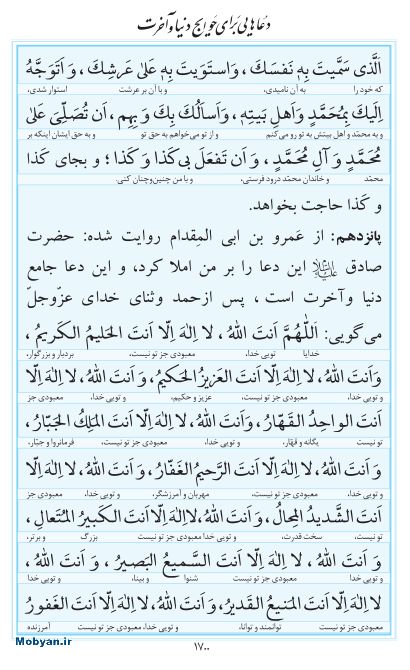 دعاهایی برای حوایج دنیا و آخرت
اَلَّذی سَمَّیْتَ بِهِ نَفْسَکَ، وَاسْتَوَیْتَ بِهِ عَلیٰ عَرْشِکَ، وَ اَتَوَجَّهُ
که خود را به آن نامیدی، و با آن بر عرشت استوار شدی،
اِلَیْکَ بِمُحَمَّدٍ وَاَهْلِ بَیْتِهِ، وَاَسْاَلُکَ بِکَ وَبِهِم، اَن تُصَلِّیَ عَلیٰ
و به محمّد و اهل بیتش به تو رو می‌کنم و از تو می‌خواهم به حق تو و به حق ایشان اینکه بر
مُحَمَّدٍ وَ آلِ مُحَمَّدٍ، وَ اَن تَفعَلَ بی‌کَذا وَ کَذا ؛ و بجای کَذا
محمّد و خاندان محمّد درود فرستی، و با من چنین‌و‌چنان کنی.
و کَذا حاجت بخواهد.
پانزدهم: از عَمرو بن ابی المِقدام روایت شده: حضرت
صادق علیه‌السلام این دعا را بر من املا کرد، و این دعا جامع
دنیا وآخرت است ، پس ازحمد وثنای خدای عزّوجلّ
می‌گویی: اَللّٰهُمَّ اَنتَ اللهُ، لا اِلٰهَ اِلّا اَنتَ الحَلیمُ الکَریمُ ،
خدایا تویی خدا، معبودی جز تو نیست، بردبار و بزرگوار،
وَاَنتَ اللهُ، لا اِلٰهَ اِلّا اَنتَ العَزیزُ الحَکیمُ، وَ اَنتَ اللهُ، لا اِلٰهَ اِلّا
و تویی خدا، معبودی جز تو نیست، عزیز و حکیم، و تویی خدا، معبودی جز
اَنتَ الواحِدُ القَهّارُ، وَ اَنتَ اللهُ، لا اِلٰهَ اِلّا اَنتَ المَلِکُ الجَبّارُ،
تو نیست یگانه و قهّار، و تویی خدا، معبودی جز تو نیست، فرمانروا و جبّار،
وَ اَنتَ اللهُ، لا اِلٰهَ اِلّا اَنتَ الرَّحیمُ الغَفّارُ، وَ اَنتَ اللهُ، لا اِلٰهَ اِلّا
و تویی خدا، معبودی جز تو نیست، مهربان و آمرزشگر، و تویی خدا، معبودی جز
اَنتَ الشَّدیدُ المِحالُ، وَ اَنتَ اللهُ، لا اِلٰهَ اِلّا اَنتَ الکَبیرُ المُتَعالِ،
تو نیست، سخت قدرت، و تویی خدا معبودی جز تو نیست بزرگ و برتر،
وَ اَنتَ اللهُ ، لا اِلٰهَ اِلّا اَنتَ السَّمیعُ البَصیرُ ، وَ اَنتَ اللهُ ،
و تویی خدا معبودی جز تو نیست شنوا و بینا، و تویی خدا
لا اِلٰهَ اِلّا اَنتَ المَنیعُ القَدیرُ، وَ اَنتَ اللهُ، لا اِلٰهَ اِلّا اَنتَ الغَفورُ
معبودی جز تو نیست توانمند و توانا، و تویی خدا، معبودی جز تو نیست آمرزنده
Mobyan.ir
۱۷۰۰